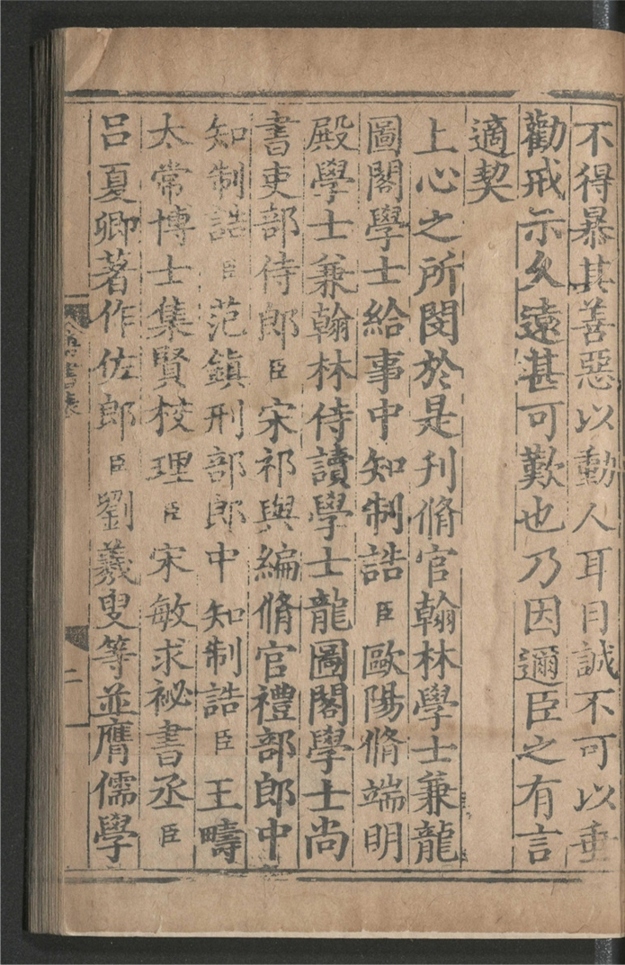 不得暴其善惡以動人耳目誠不可以垂
勸戒示久遠甚可歎也乃因邇臣之有言
適契
上心之所閔於是刋脩官翰林學士兼龍
圖閣學士給事中知制誥臣歐陽脩端明
殿學士兼翰林侍讀學士龍圖閣學士尚
書吏部侍郎臣宋祁與編脩官禮部郎中
知制誥臣范鎮刑部郎中知制誥臣王疇
太常博士集賢校理臣宋敏求祕書丞臣
吕夏卿著作佐郎臣劉羲叟等並膺儒學
書表
二